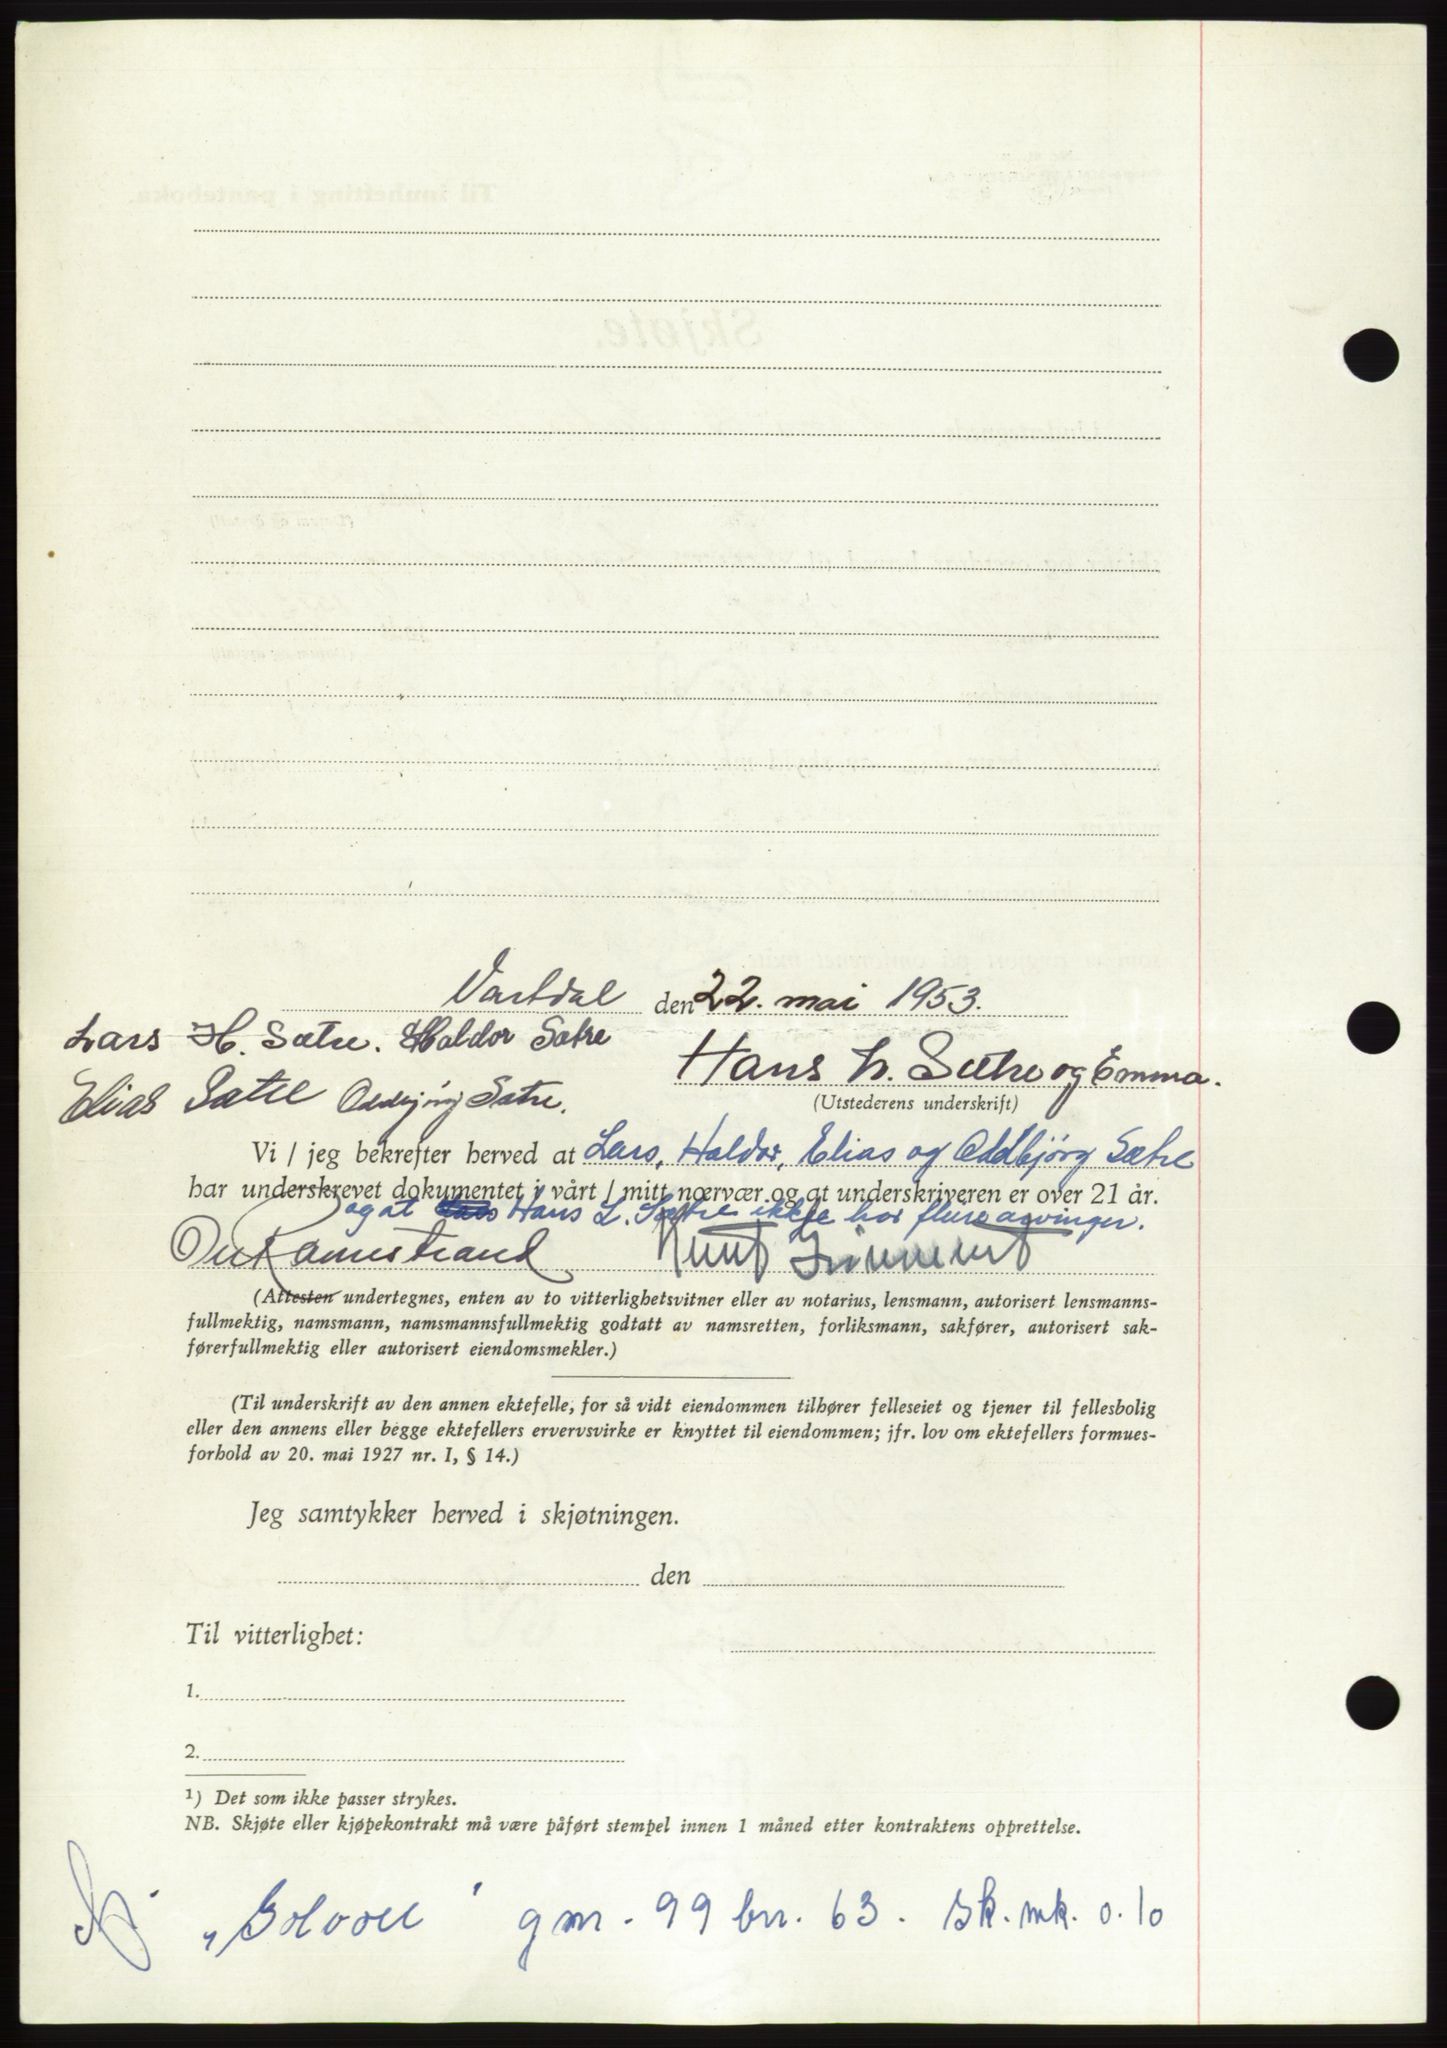 Vartdal den 22. mai 1953.
Lars H. Sætre. Haldor Sætre
Hans L. Sætre og Emma.
Elias Sætre Oddbjörg Sætre.
(Utstederens underskrift)
Vi / jeg bekrefter herved at Lars, Haldor, Elias og Oddbjörg Sætre
har underskrevet dokumentet i vårt / mitt nærvær og at underskriveren er over 21 år.
og at Hans L. Sætre ikkje har fleire arvinger.
Ramstrand Knut
(Attesten undertegnes, enten av to vitterlighetsvitner eller av notarius, lensmann, autorisert lensmanns-
fullmektig, namsmann, namsmannsfullmektig godtatt av namsretten, forliksmann, sakfører, autorisert sak-
førerfullmektig eller autorisert eiendomsmekler.)
(Til underskrift av den annen ektefelle, for så vidt eiendommen tilhører felleseiet og tjener til fellesbolig
eller den annens eller begge ektefellers ervervsvirke er knyttet til eiendommen; jfr. lov om ektefellers formues-
forhold av 20. mai 1927 nr. I, § 14.)
Jeg samtykker herved i skjøtningen.
den
Til vitterlighet:
1.
2.
¹) Det som ikke passer strykes.
NB. Skjøte eller kjøpekontrakt må være påført stempel innen 1 måned etter kontraktens opprettelse.
gnr. 99 bnr. 63. sk. mk. 0.10